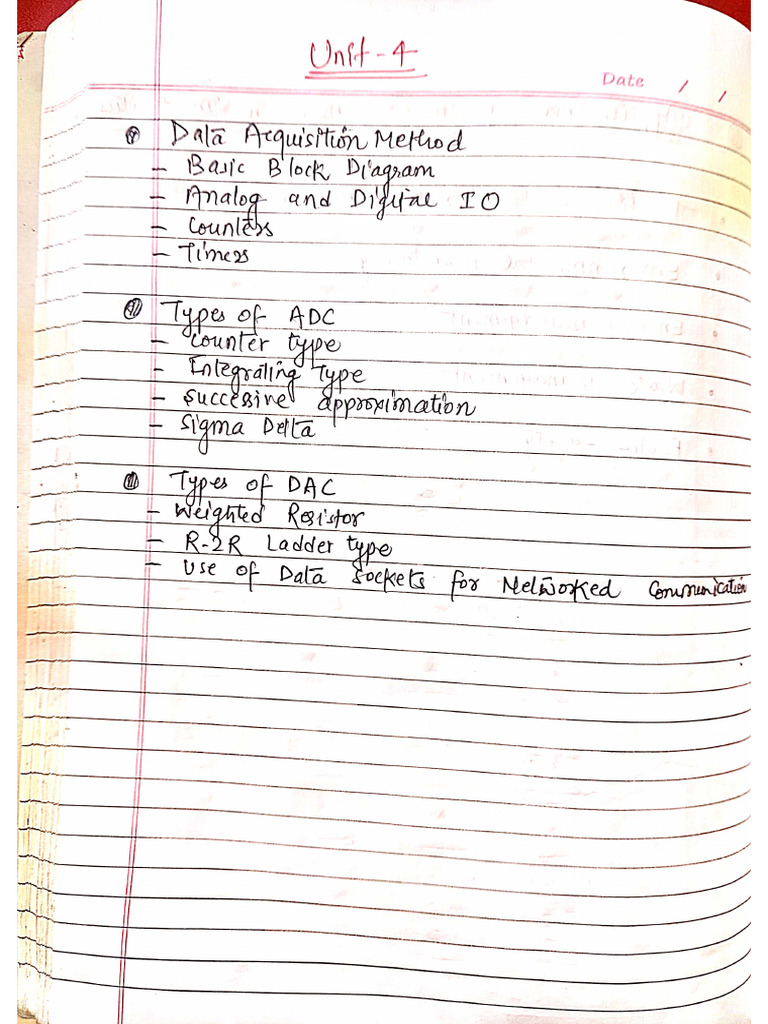 Unit-4
Date / /
Data Acquisition Method
- Basic Block Diagram
- Analog and Digital IO
- Counters
- Timers
Types of ADC
- Counter type
- Integrating Type
- Successive approximation
- Sigma Delta
Types of DAC
- Weighted Resistor
- R-2R Ladder type
- Use of Data Sockets for Networked Communication